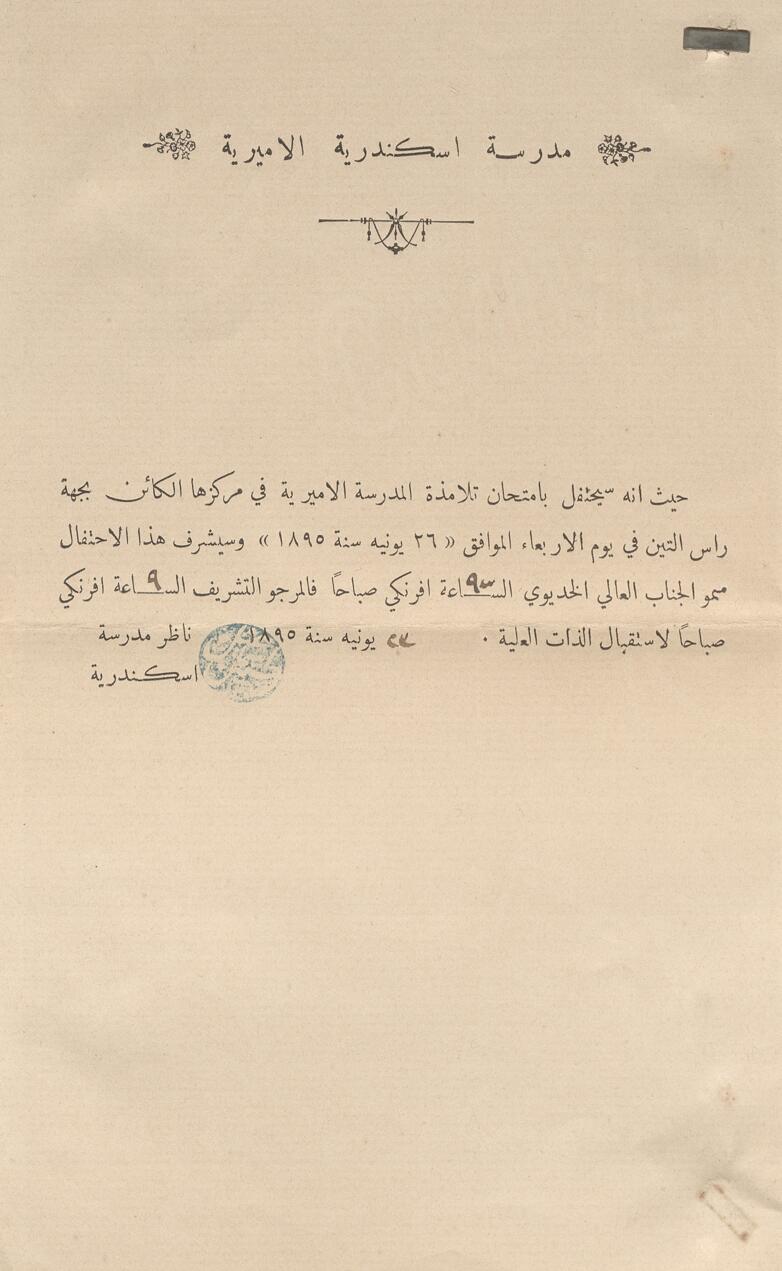 مدرسة اسكندرية الاميرية
حيث انه سيحتفل بامتحان تلامذة المدرسة الاميرية في مركزها الكائن بجهة
راس التين في يوم الاربعاء الموافق « ٢٦ يونيه سنة ١٨٩٥ » وسيشرف هذا الاحتفال
سمو الجناب العالي الخديوي الساعة افرنكي صباحاً فالمرجو التشريف الساعة ٩ افرنكي
صباحاً لاستقبال الذات العلية · ٢٣ يونيه سنة ١٨٩٥ ناظر مدرسة
اسكندرية